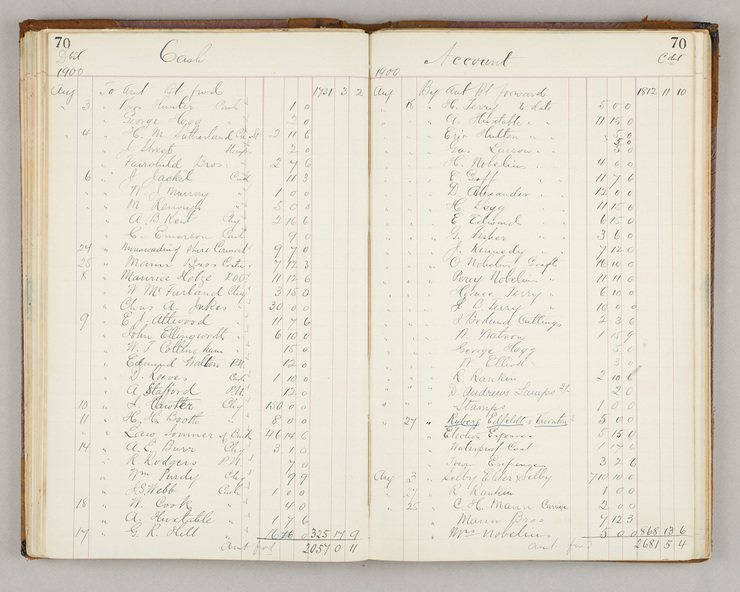 70
Cash
1900
Aug To Amt Bt fwd 1731 3 2
3 " Wm Hunter Cash 1 0
George Hogg 2 0
4 " H. M. Sutherland 2 11 6
" J. Street 2 0
" Fairchild Bros. 2 7 6
6 " J. Jackel 11 3
" W J Murray 1 0 0
" M Kenough 5 0 0
" A. B. Kent Chq 2 16 6
" C. Emerson Cash 9 0
24 " Nunawading Shire Council 9 7 0
25 " Mann Bros 7 12 3
8 " Maurice Hotze P.O.O. 11 12 6
" W McFarland Chq 3 15 0
" Chas A. Jukes 30 0 0
9 " E J Attwood 11 7 6
" John Ellingworth 6 10 0
" W. J. Cottingham 15 0
" Edmund Walton P.N. 12 0
" D. Reeves Cash 1 10 0
" A Stafford P.N. 12 0
10 " Chq 150 0 0
11 " H. H. Booth " 8 0 0
" Law, Somner & Co 40 14 6
14 " A. E. Burr Chq 3 1 0
" R. Rodgers P.N. 7 0
" Wm Purdy Chq 9 9
" J. S. Webb Cash 1 0 0
18 " W. Cook " 4 0
" A. Huxtable " 1 7 6
17 " G. R. Hill 0 325 17 9
Amt fwd 2057 0 11
70
Account
1900
Aug By Amt Bt forward 1812 11 10
18 " H. Terry 5 0 0
" A. Huxtable " 11 15 0
" Eric Hulton " 5 0
" Gus 5 0
" H. Nobelius " 4 0 0
" E Goff " 11 7 6
" D. Alexander " 12 0 0
" H. Legg " 11 15 0
" E. Edmunds 6 15 0
" G. Fisher " 3 6 0
" J. Kennedy " 7 12 0
" C Nobelius Graft 16 10 0
" Percy Nobelius " 11 11 0
" Grace Terry " 6 10 0
" L B Terry " 10 0 0
" Cuttings 2 3 6
" A. Watson 1 15 9
" George Hogg 5 0
" W Elliott
" R. Rankin 2 10 6
" D. Andrews Lamps 2 0
" Stamps 1 0 0
27 " Ryberg 5 0 0
" Election Expenses 5 15 0
" Waterproof Coat 1
" Town Expenses 3 2 6
Aug 23 " Selby Elder Selby 710 10 0
27 " R Rankin 1 0 0
25 " C. H. Mann 2 0 0
" Mann Bros 7 12 3
" Wm Nobelius 5 0 0 868 13 6
Amt fwd 2681 5 4